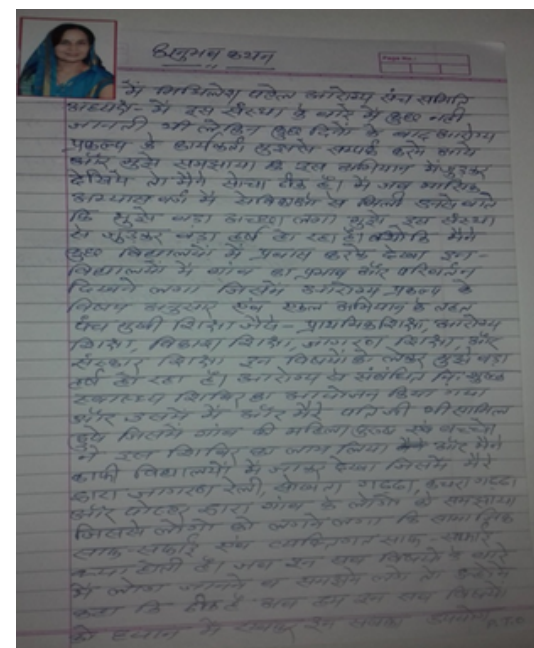 अनुभव कथन
Page No.:
में मिथिलेश पटेल आरोग्य संच समिति
अध्यक्ष- में इस संस्था के बारे में कुछ नही
जानती थी लेकिन कुछ दिनो के बाद आरोग्य
प्रकल्प के कार्यकर्ता मुझसे सम्पर्क करने आये
और मुझे समझाया कि इस अभियान में जुड़कर
देखिये तो मैने सोचा ठीक है। में जब मासिक
अभ्यास वर्ग में
कि मुझे बड़ा अच्छा लगा मुझे इस संस्था
से जुड़कर बड़ा हर्ष हो रहा है। क्योकि मैने
कुछ विद्यालयो में प्रवास करके देखा इन-
विद्यालयो में गांव का प्रभाव और परिवर्तन
दिखने लगा जिसमें आरोग्य प्रकल्प के
विषय अनुसार एवं एकल अभियान के तहत
पंच मुखी शिक्षा जैसे- प्राथमिक शिक्षा, आरोग्य
शिक्षा, विकास शिक्षा, जागरण शिक्षा, और
संस्कार शिक्षा इन विषयो को लेकर मुझे बड़ा
हर्ष हो रहा है। आरोग्य से संबंधित नि:शुल्क
स्वास्थ्य शिविर का आयोजन किया गया
और उसमें में और मेरे पति जी भी सामिल
हुये जिसमें गांव की महिला पुरुष एवं बच्चो
ने इस शिविर का लाभ लिया और मैने
काफी विद्यालयो में जाकर देखा जिसमें मेरे
द्वारा जागरण रैली, सोखता गड्डा, कचरा गड्डा
और पोस्टर द्वारा गांव के लोगो को समझाया
जिससे लोगो को लगने लगा कि सामाजिक
साफ-सफाई एवं व्यक्तिगत साफ-सफाई
क्या होती है। जब इन सब विषयो के बारे
में लोग जानने व समझने लगे तो उन्होने
कहा कि ठीक है अब हम इन सब विषयो
को ध्यान में रखकर इन सबका उपयोग
P.T.O